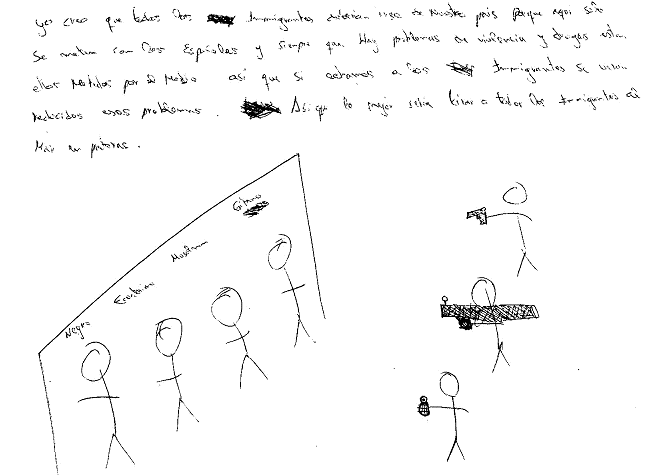 yo creo que todos los Immigrantes deberian irse de Nuestro pais porque aqui solo
Se meten con los Españoles y siempre que Hay problemas de violencia y drogas estan
ellos Metidos por el Medio asi que si echamos a los Immigrantes se verian
reducidos esos problemas. Asi que lo mejor seria tirar a todos los Immigrantes al
Mar en pateras.
Gitano
Musulman
Negro